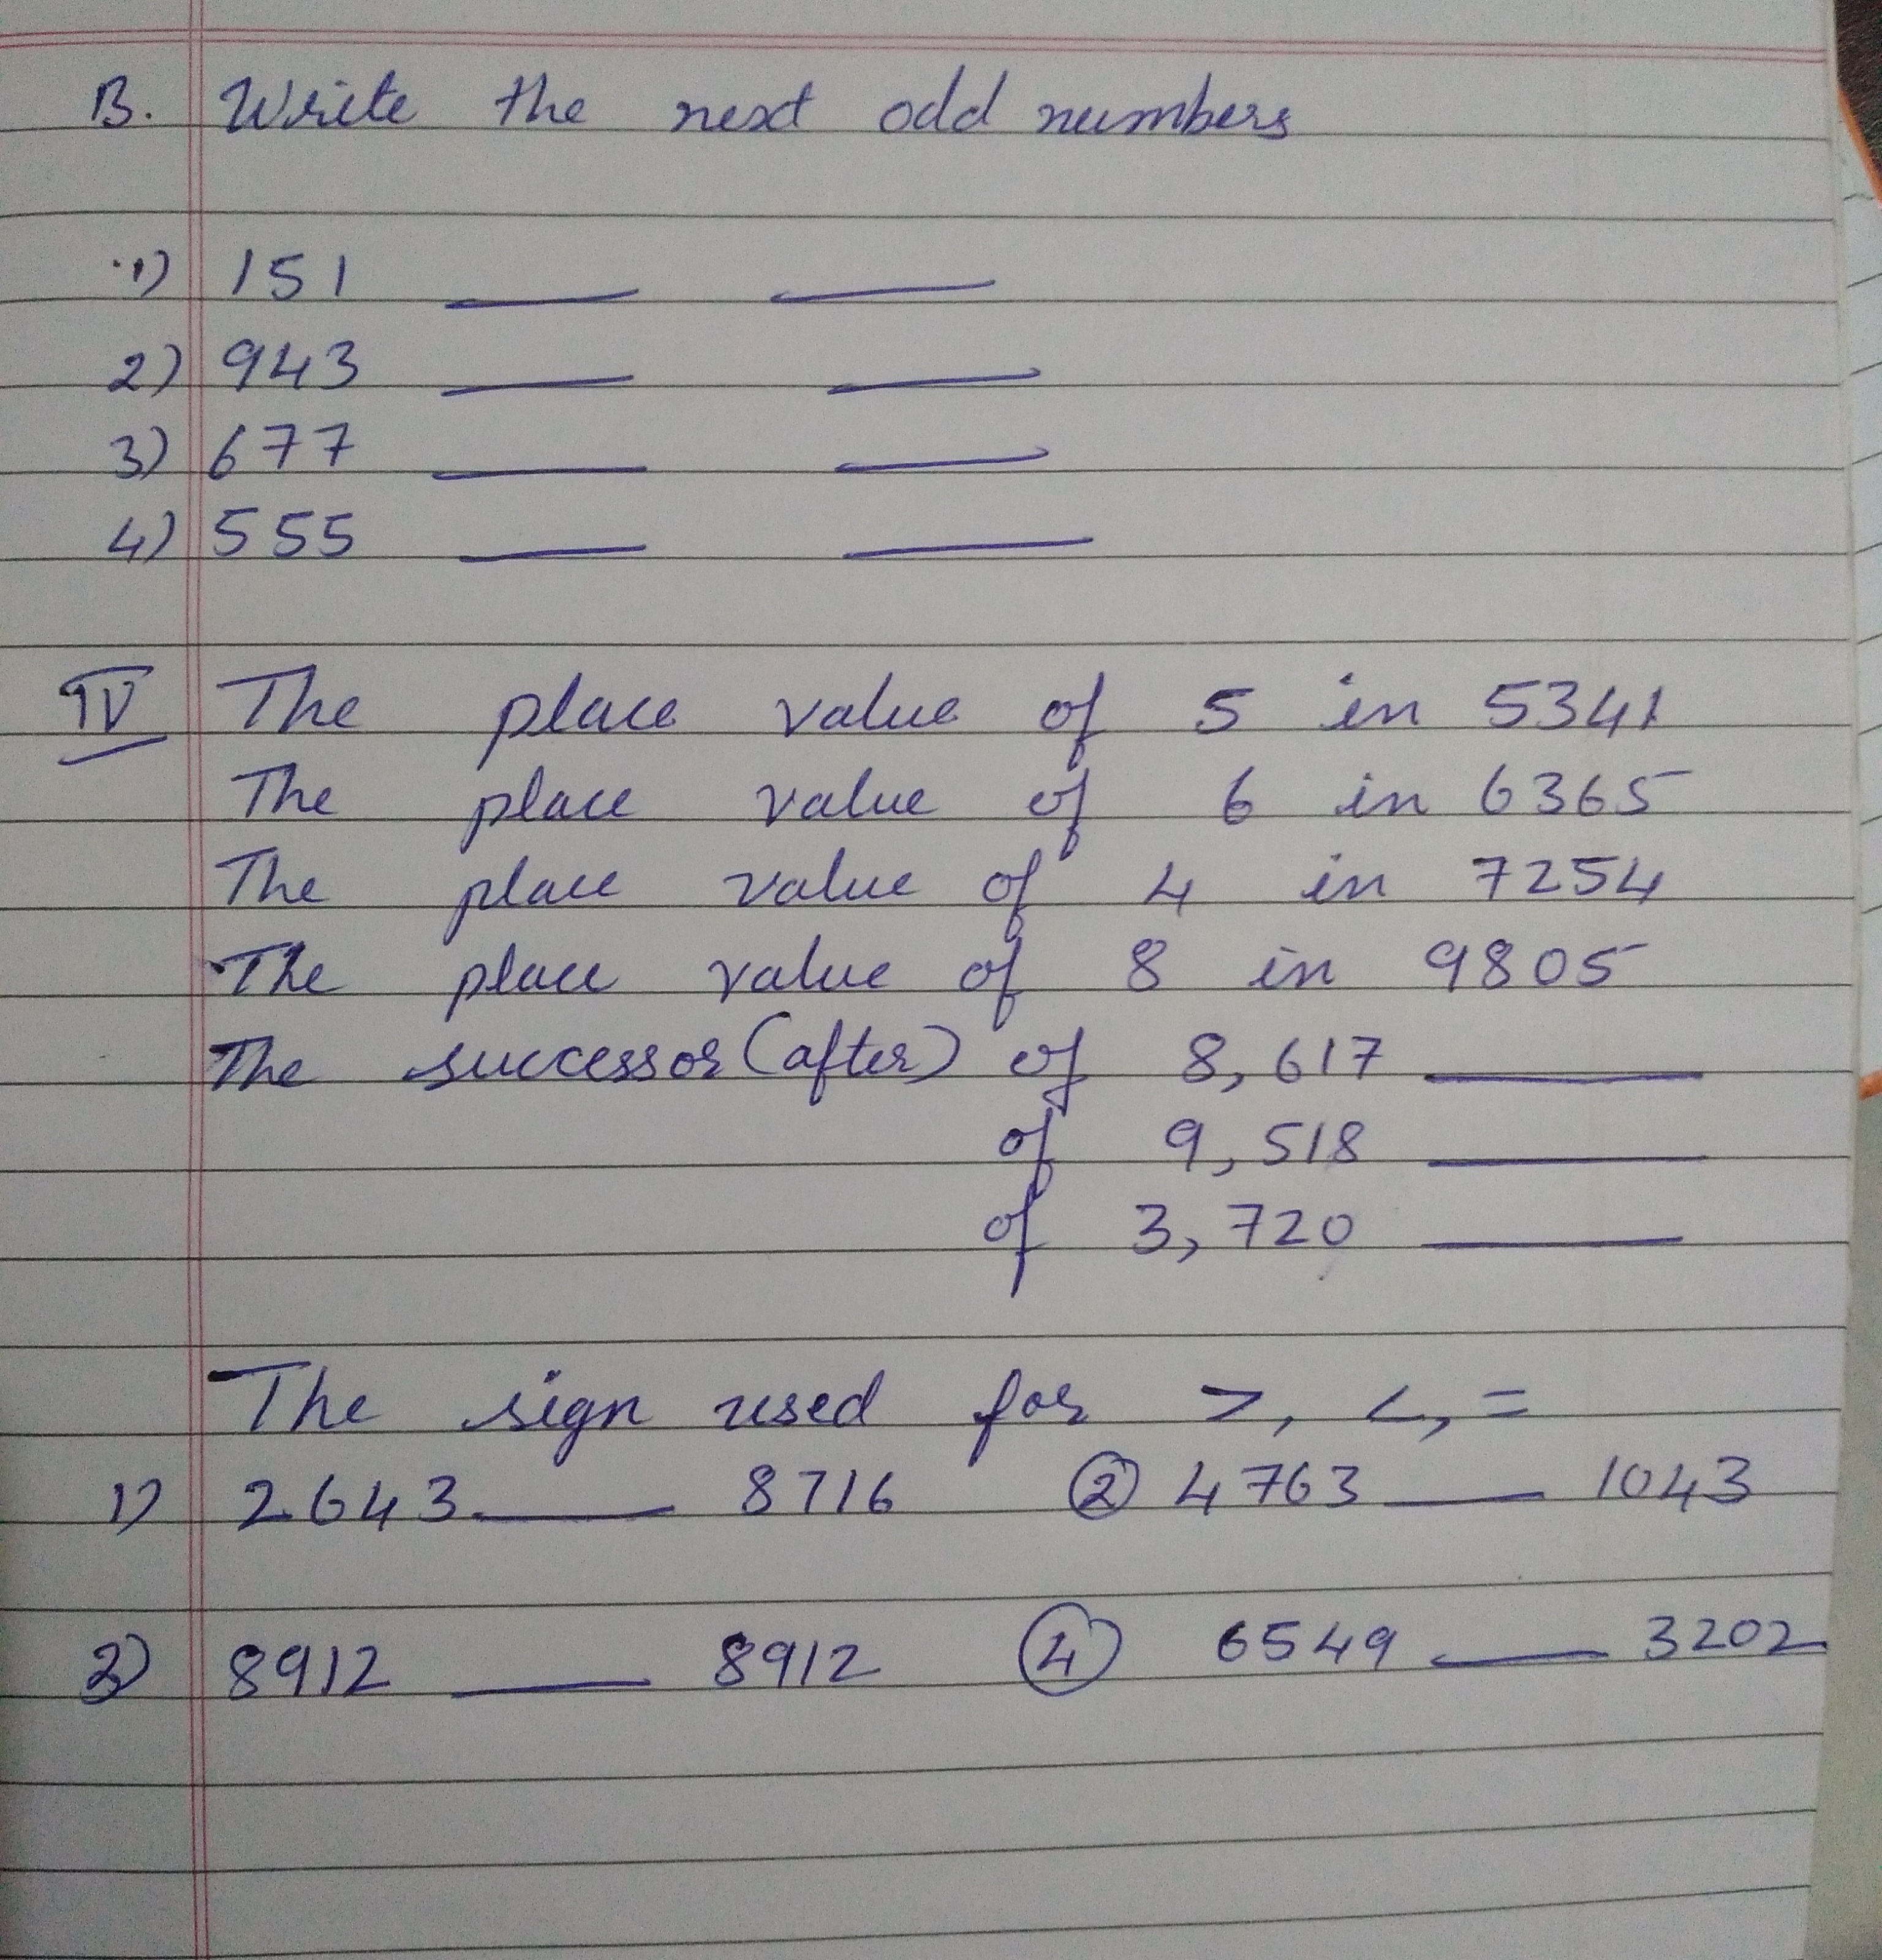 B. Write the next odd numbers
1) 151 ___ ___
2) 943 ___ ___
3) 677 ___ ___
4) 555 ___ ___
IV The place value of 5 in 5341
The place value of 6 in 6365
The place value of 4 in 7254
The place value of 8 in 9805
The successor (after) of 8,617 ___
of 9,518 ___
of 3,720 ___
The sign used for >, <, =
1) 2643 ___ 8716 ② 4763 ___ 1043
3) 8912 ___ 8912 ④ 6549 ___ 3202